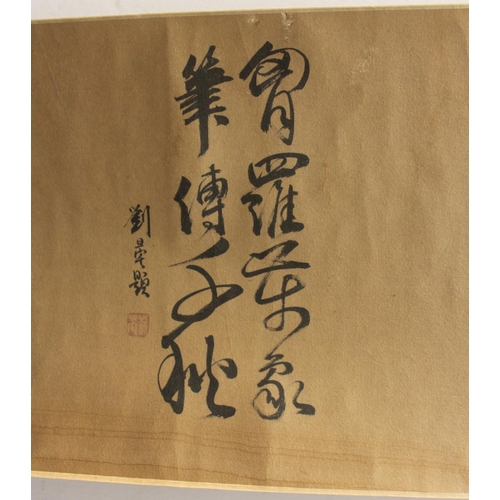 胷羅萬象
筆傳千秋
劉題